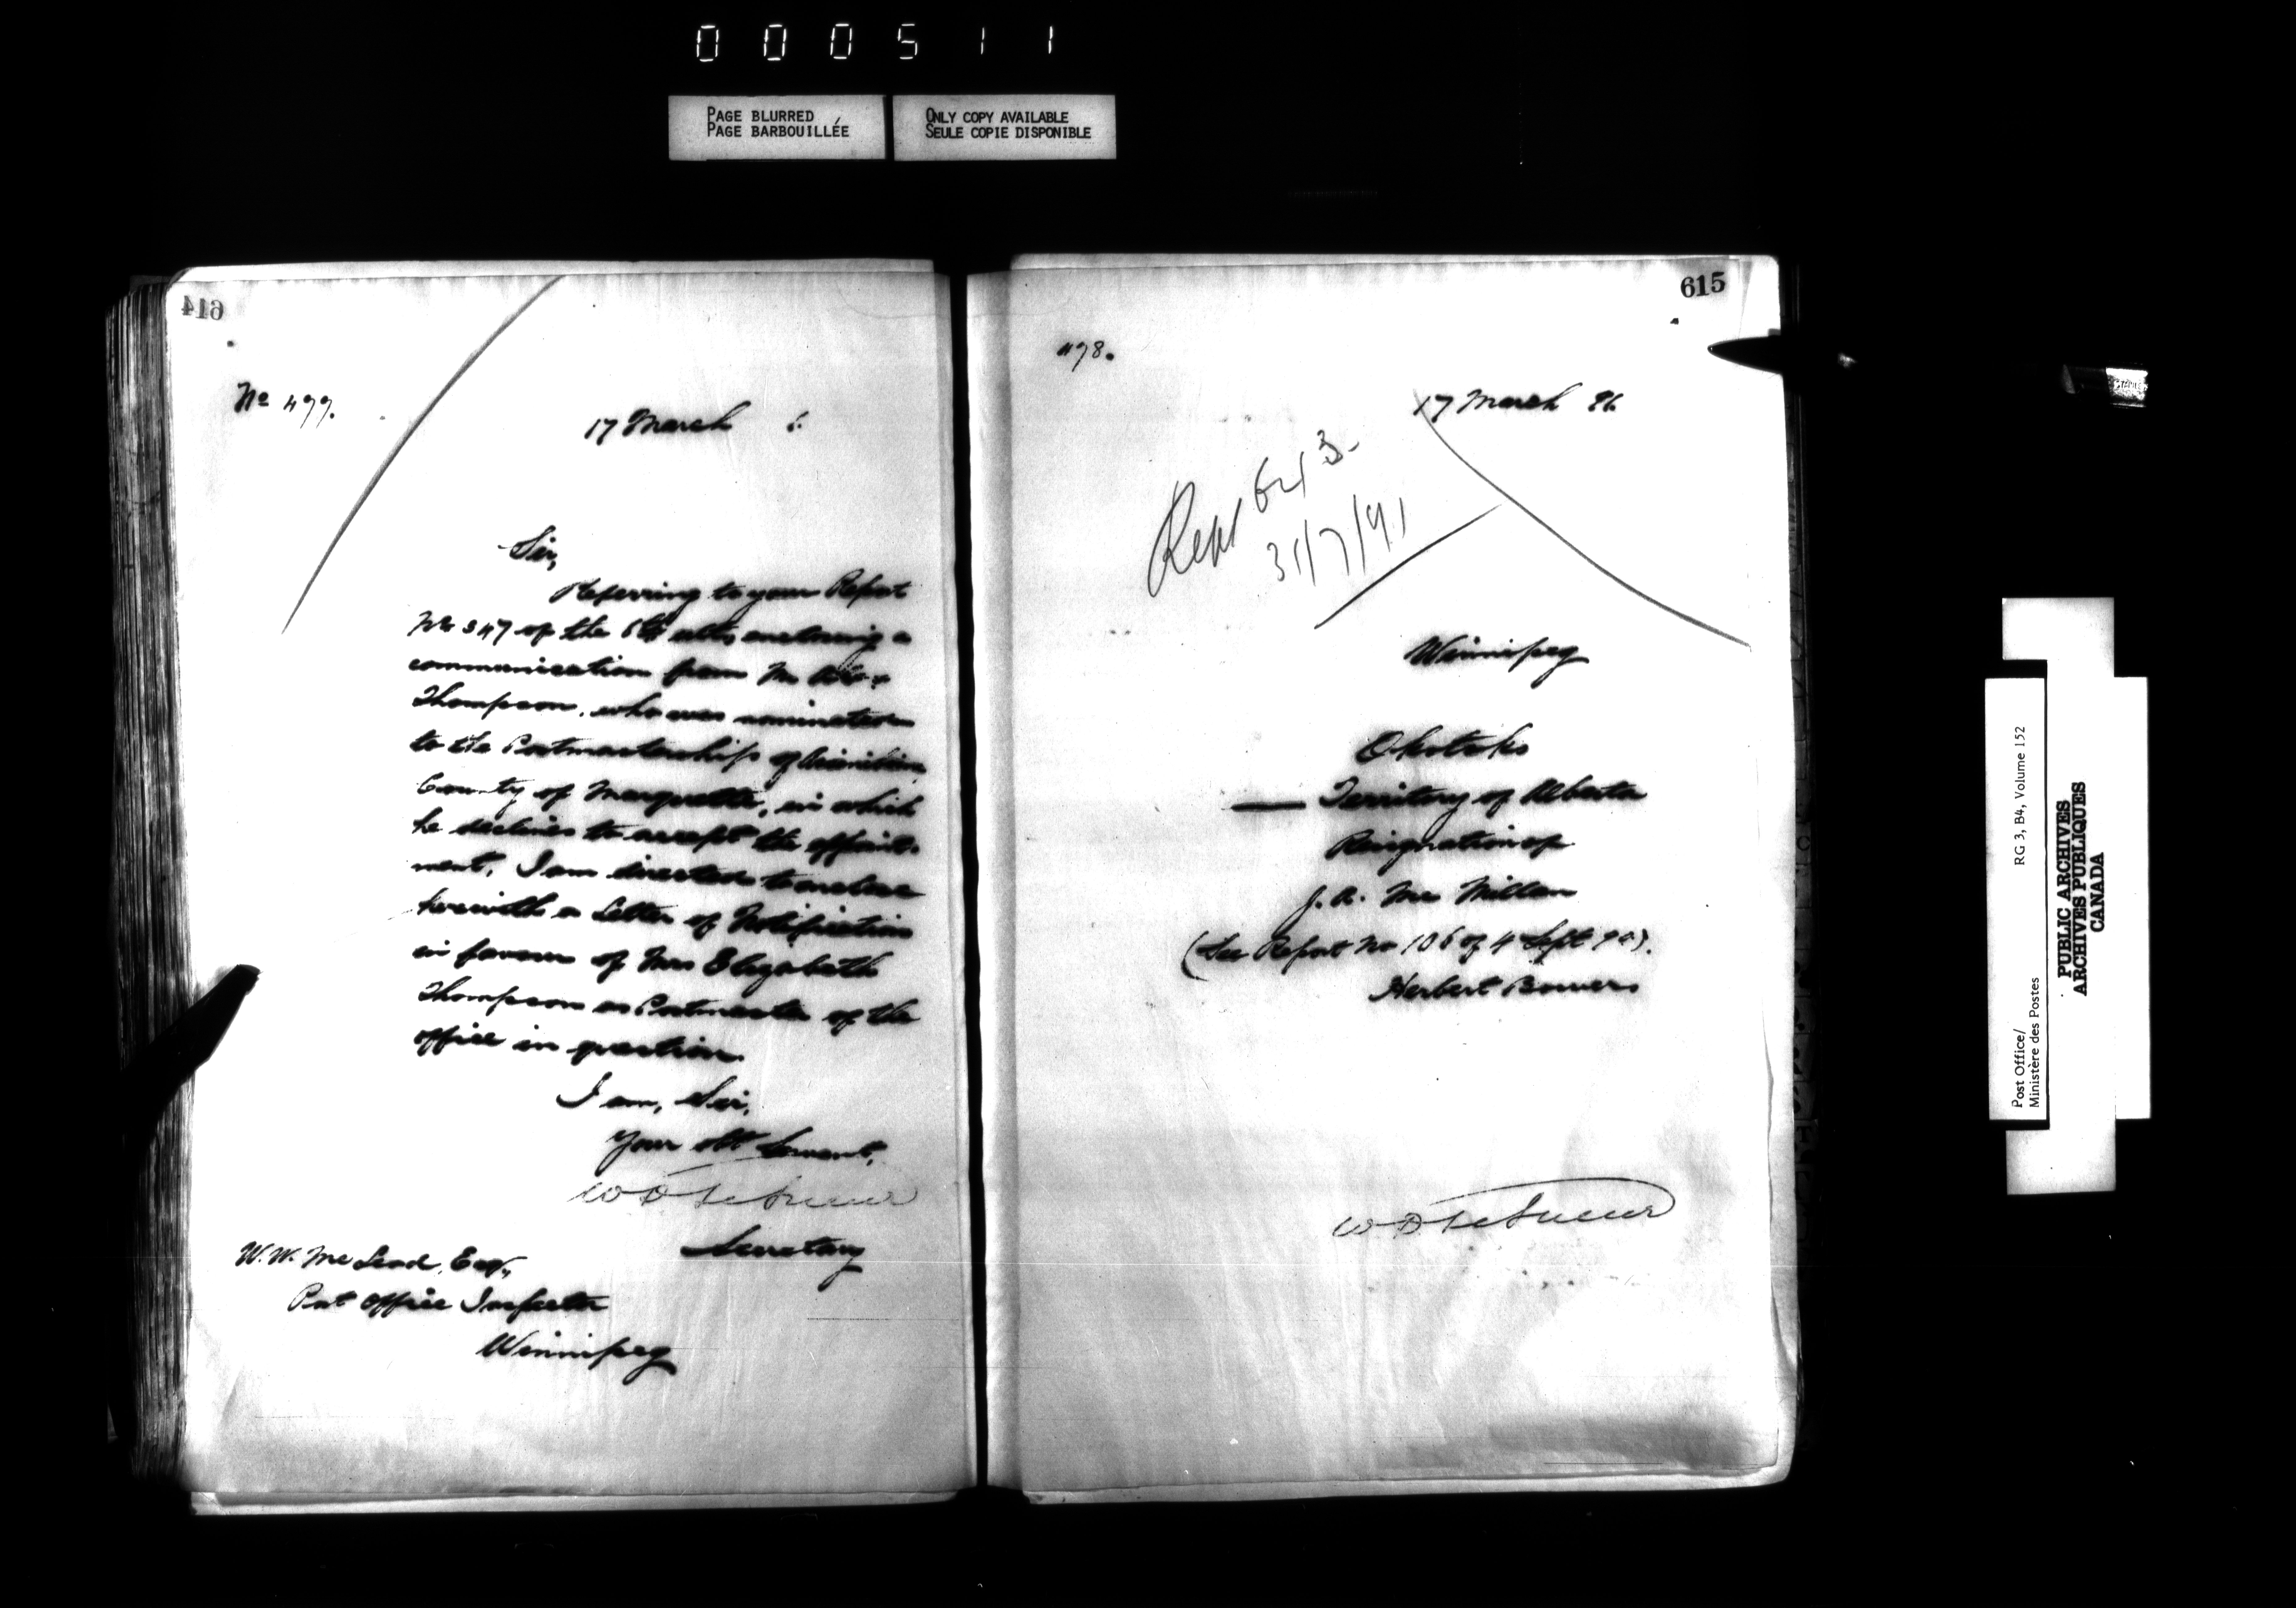 000511
PAGE BLURRED
PAGE BARBOUILLÉE
ONLY COPY AVAILABLE
SEULE COPIE DISPONIBLE
614
No 477.
17 March
Sir,
Referring to your Report
No 347 of the 6th ulto, enclosing a
communication from Mr
Thompson, who was nominated
to the Postmastership of
County of Marquette, in which
he declines to accept the appoint-
ment, I am directed to enclose
herewith a Letter of Notification
in favour of Mrs Elizabeth
Thompson as Postmaster of the
office in question.
I am, Sir,
Your obt Servant,
W D LeSueur
Secretary
W. W. McLeod, Esq.,
Post Office Inspector
Winnipeg
615
478.
17 March
Rept 643
31/7/91
Winnipeg
Okotoks
Territory of Alberta
Resignation of
J. A. McMillan
(See Report No 106 of 4 Sept 90).
Herbert Bowers
W D LeSueur
Post Office/
Ministère des Postes
RG 3, B4, Volume 152
PUBLIC ARCHIVES
ARCHIVES PUBLIQUES
CANADA